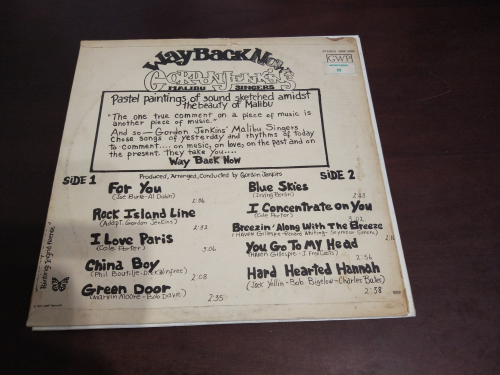 Way Back Now
Gordon Jenkins
MALIBU SINGERS
GWP
Pastel paintings of sound sketched amidst
the beauty of Malibu
"The one true comment on a piece of music is
another piece of music."
And so— Gordon Jenkins' Malibu Singers
chose songs of yesterday and rhythms of today
to comment.... on music, on love, on the past and on
the present. They take you....
Way Back Now
Produced, Arranged, Conducted by Gordon Jenkins
SIDE 1
For You
(Joe Burke-Al Dubin)
Rock Island Line
(Adapt. Gordon Jenkins) 2:32
I Love Paris
(Cole Porter) 3:06
China Boy
(Phil Boutelje-Dick Winfree) 2:08
Green Door
(Marvin Moore-Bob Davie) 2:35
SIDE 2
Blue Skies
(Irving Berlin)
I Concentrate on You
(Cole Porter) 3:02
Breezin' Along With The Breeze
(Haven Gillespie-Richard Whiting-Seymour Simons)
You Go To My Head
(Haven Gillespie-J. Fred Coots) 2:56
Hard Hearted Hannah
(Jack Yellin-Bob Bigelow-Charles Bates)
2:38